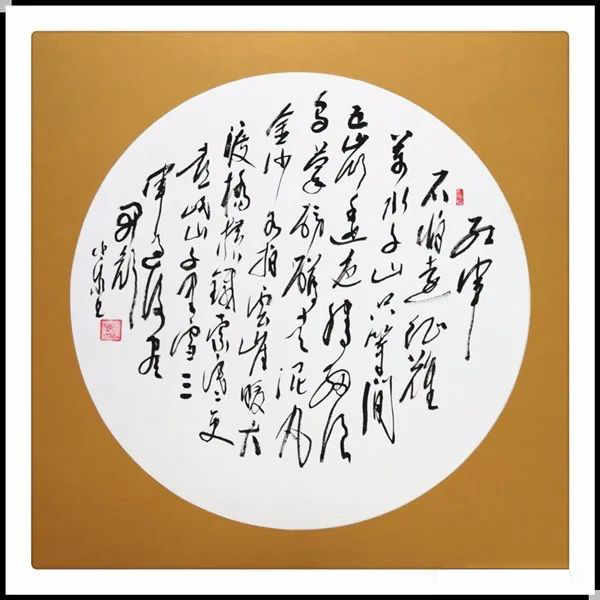 红军
不怕远征难
萬水千山只等闲
五岭逶迤腾细浪
乌蒙磅礴走泥丸
金沙水拍雲崖暖大
渡橋横鐵索寒更
喜岷山千里雪三
军过后尽
开颜